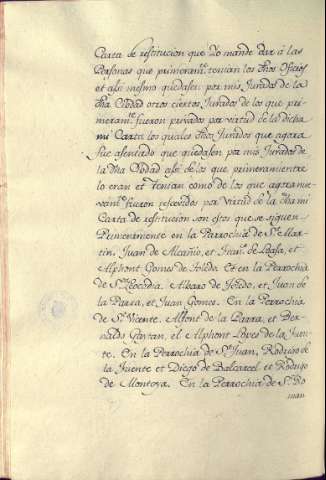 Carta de restitucion que Yo mande dar á las
Personas que primeramte. tenian los dhos Oficios
et asi mesmo quedasen por mis Jurados de la
dha Ciudad otros ciertos Jurados de los que pri-
meramte. fueron privados por virtud de la dicha
mi Carta los quales dhos Jurados que agora
fue asentado que quedasen por mis Jurados de
la dha Ciudad asi de los que primeramientre
lo eran et tenian como de los que agora nue-
vamte. fueron rescevidos por virtud de la dha mi
Carta de restitucion son estos que se siguen
Primeramente en la Perrochia de Sn. Mar-
tin, Juan de Alcañio, et Franco. de Loasa, et
Alphont Gomes de Toledo. Et en la Perrochia
de Sta. Leocadia. Alvaro de Toledo, et Juan de
la Parra, et Juan Gomes. En la Perrochia
de Sn. Vicente. Alfont de la Parra, et Ber-
naldo Gaytan, et Alphont Lopes de la Fuen-
te. En la Perrochia de Sn. Juan, Rodrigo de
la Fuente et Diego de Balcarcel et Rodrigo
de Montoya. En la Perrochia de Sn. Ro
man